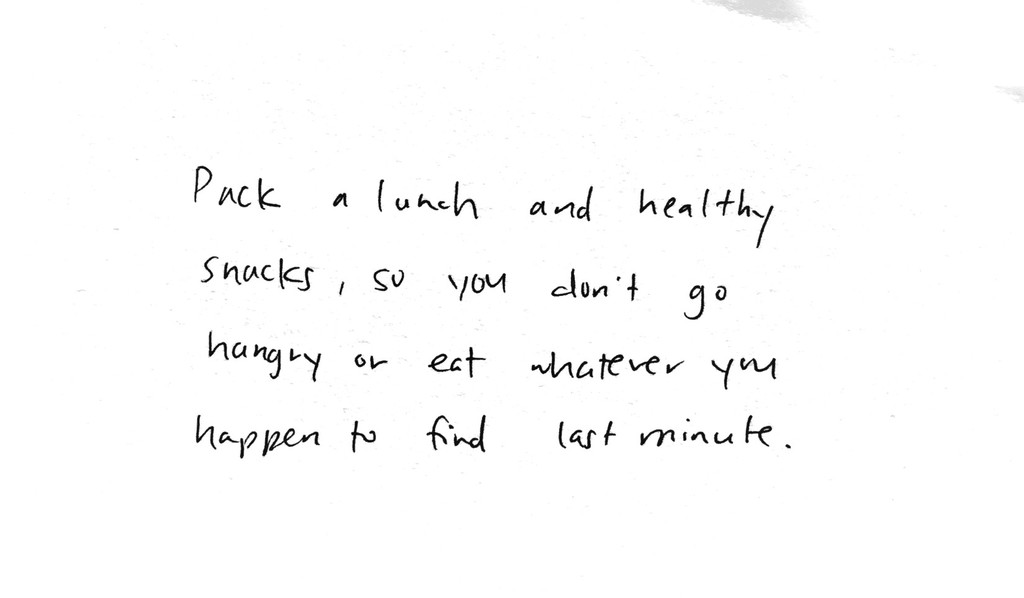 Pack a lunch and healthy
snacks, so you don't go
hungry or eat whatever you
happen to find last minute.